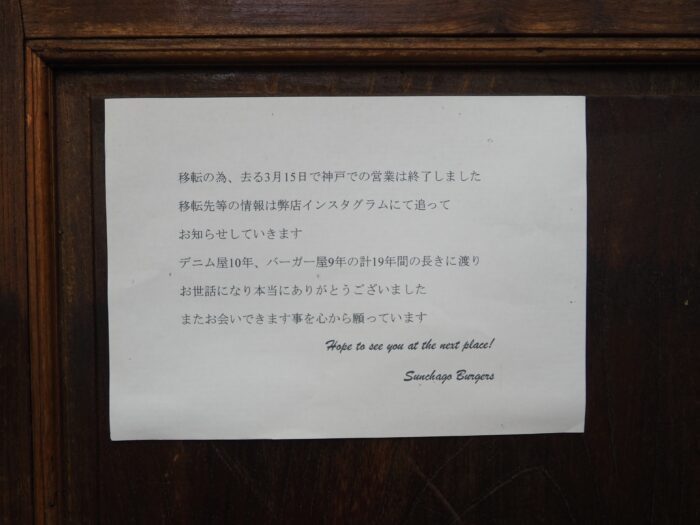 移転の為、去る3月15日で神戸での営業は終了しました
移転先等の情報は弊店インスタグラムにて追って
お知らせしていきます
デニム屋10年、バーガー屋9年の計19年間の長きに渡り
お世話になり本当にありがとうございました
またお会いできます事を心から願っています
Hope to see you at the next place!
Sunchago Burgers